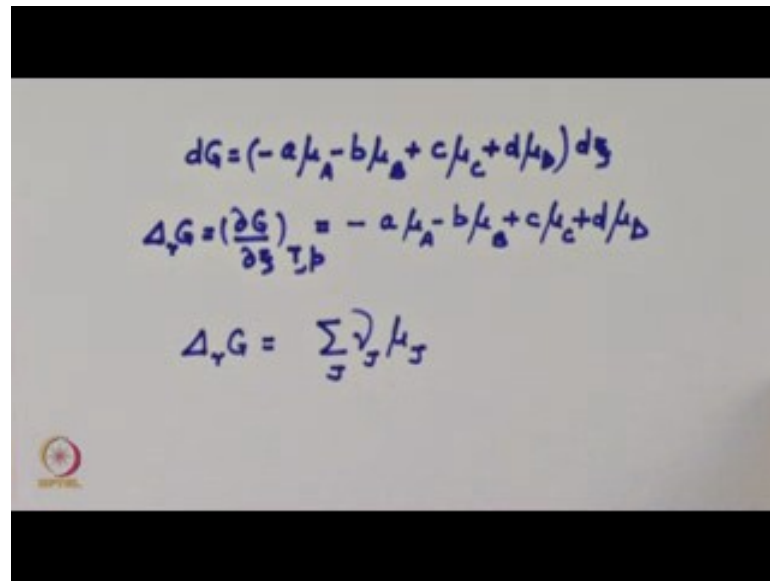 dG = (- aμ_A - bμ_B + cμ_C + dμ_D) dξ
Δ_rG = (∂G/∂ξ)_T,p = - aμ_A - bμ_B + cμ_C + dμ_D
Δ_rG = Σ_J ν_J μ_J
NPTEL